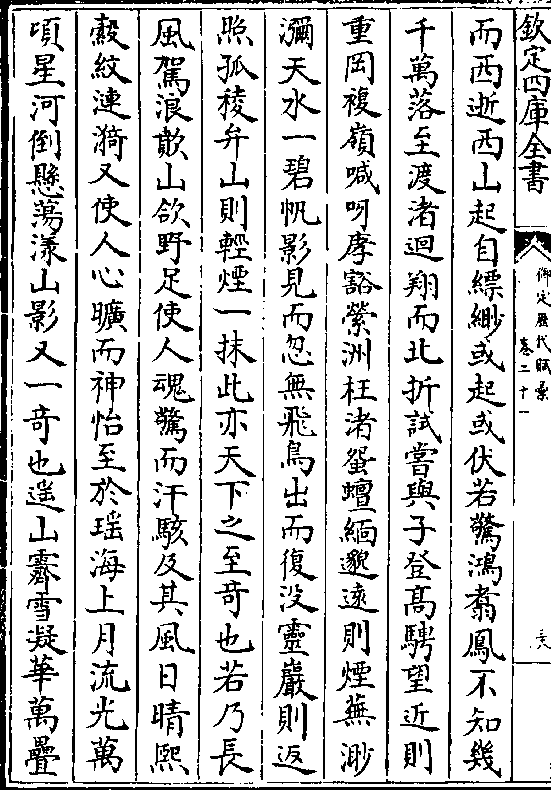 欽定四庫全書
御定歷代賦彙
卷二十一
而西逝西山起自縹緲或起或伏若驚鴻翥鳳不知幾
千萬落至渡渚迴翔而北折試嘗與子登髙騁望近則
重岡複嶺㗔呀庨豁縈洲枉渚蜑蟺緬邈逺則煙蕪渺
瀰天水一碧帆影見而忽無飛鳥出而復没靈巖則返
照孤稜弁山則輕煙一抹此亦天下之至奇也若乃長
風駕浪歊山欱野足使人魂驚而汗駭及其風日晴熙
縠紋連漪又使人心曠而神怡至於瑶海上月流光萬
頃星河倒懸蕩漾山影又一竒也遥山霽雪凝華萬疊